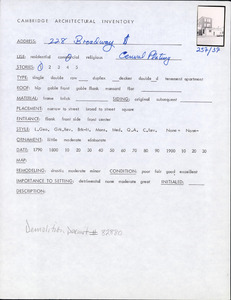 CAMBRIDGE ARCHITECTURAL INVENTORY
ADDRESS: 228 Broadway
252/37
USE: residential commercial religious
STORIES: 1 2 3 4 5
TYPE: single double row duplex decker double d tenement apartment
ROOF: hip gable front gable flank mansard flat
MATERIAL: frame brick SIDING: original subsequent
PLACEMENT: narrow to street broad to street square
ENTRANCE: flank front side front center
STYLE:
ORNAMENT: little moderate elaborate
DATE: 1790 1800 10 20 30 40 50 60 70 80 90 1900 10 20 30
MAP:
REMODELING: drastic moderate minor CONDITION: poor fair good excellent
IMPORTANCE TO SETTING: detrimental none moderate great INITIALED:
DESCRIPTION:
Demolition